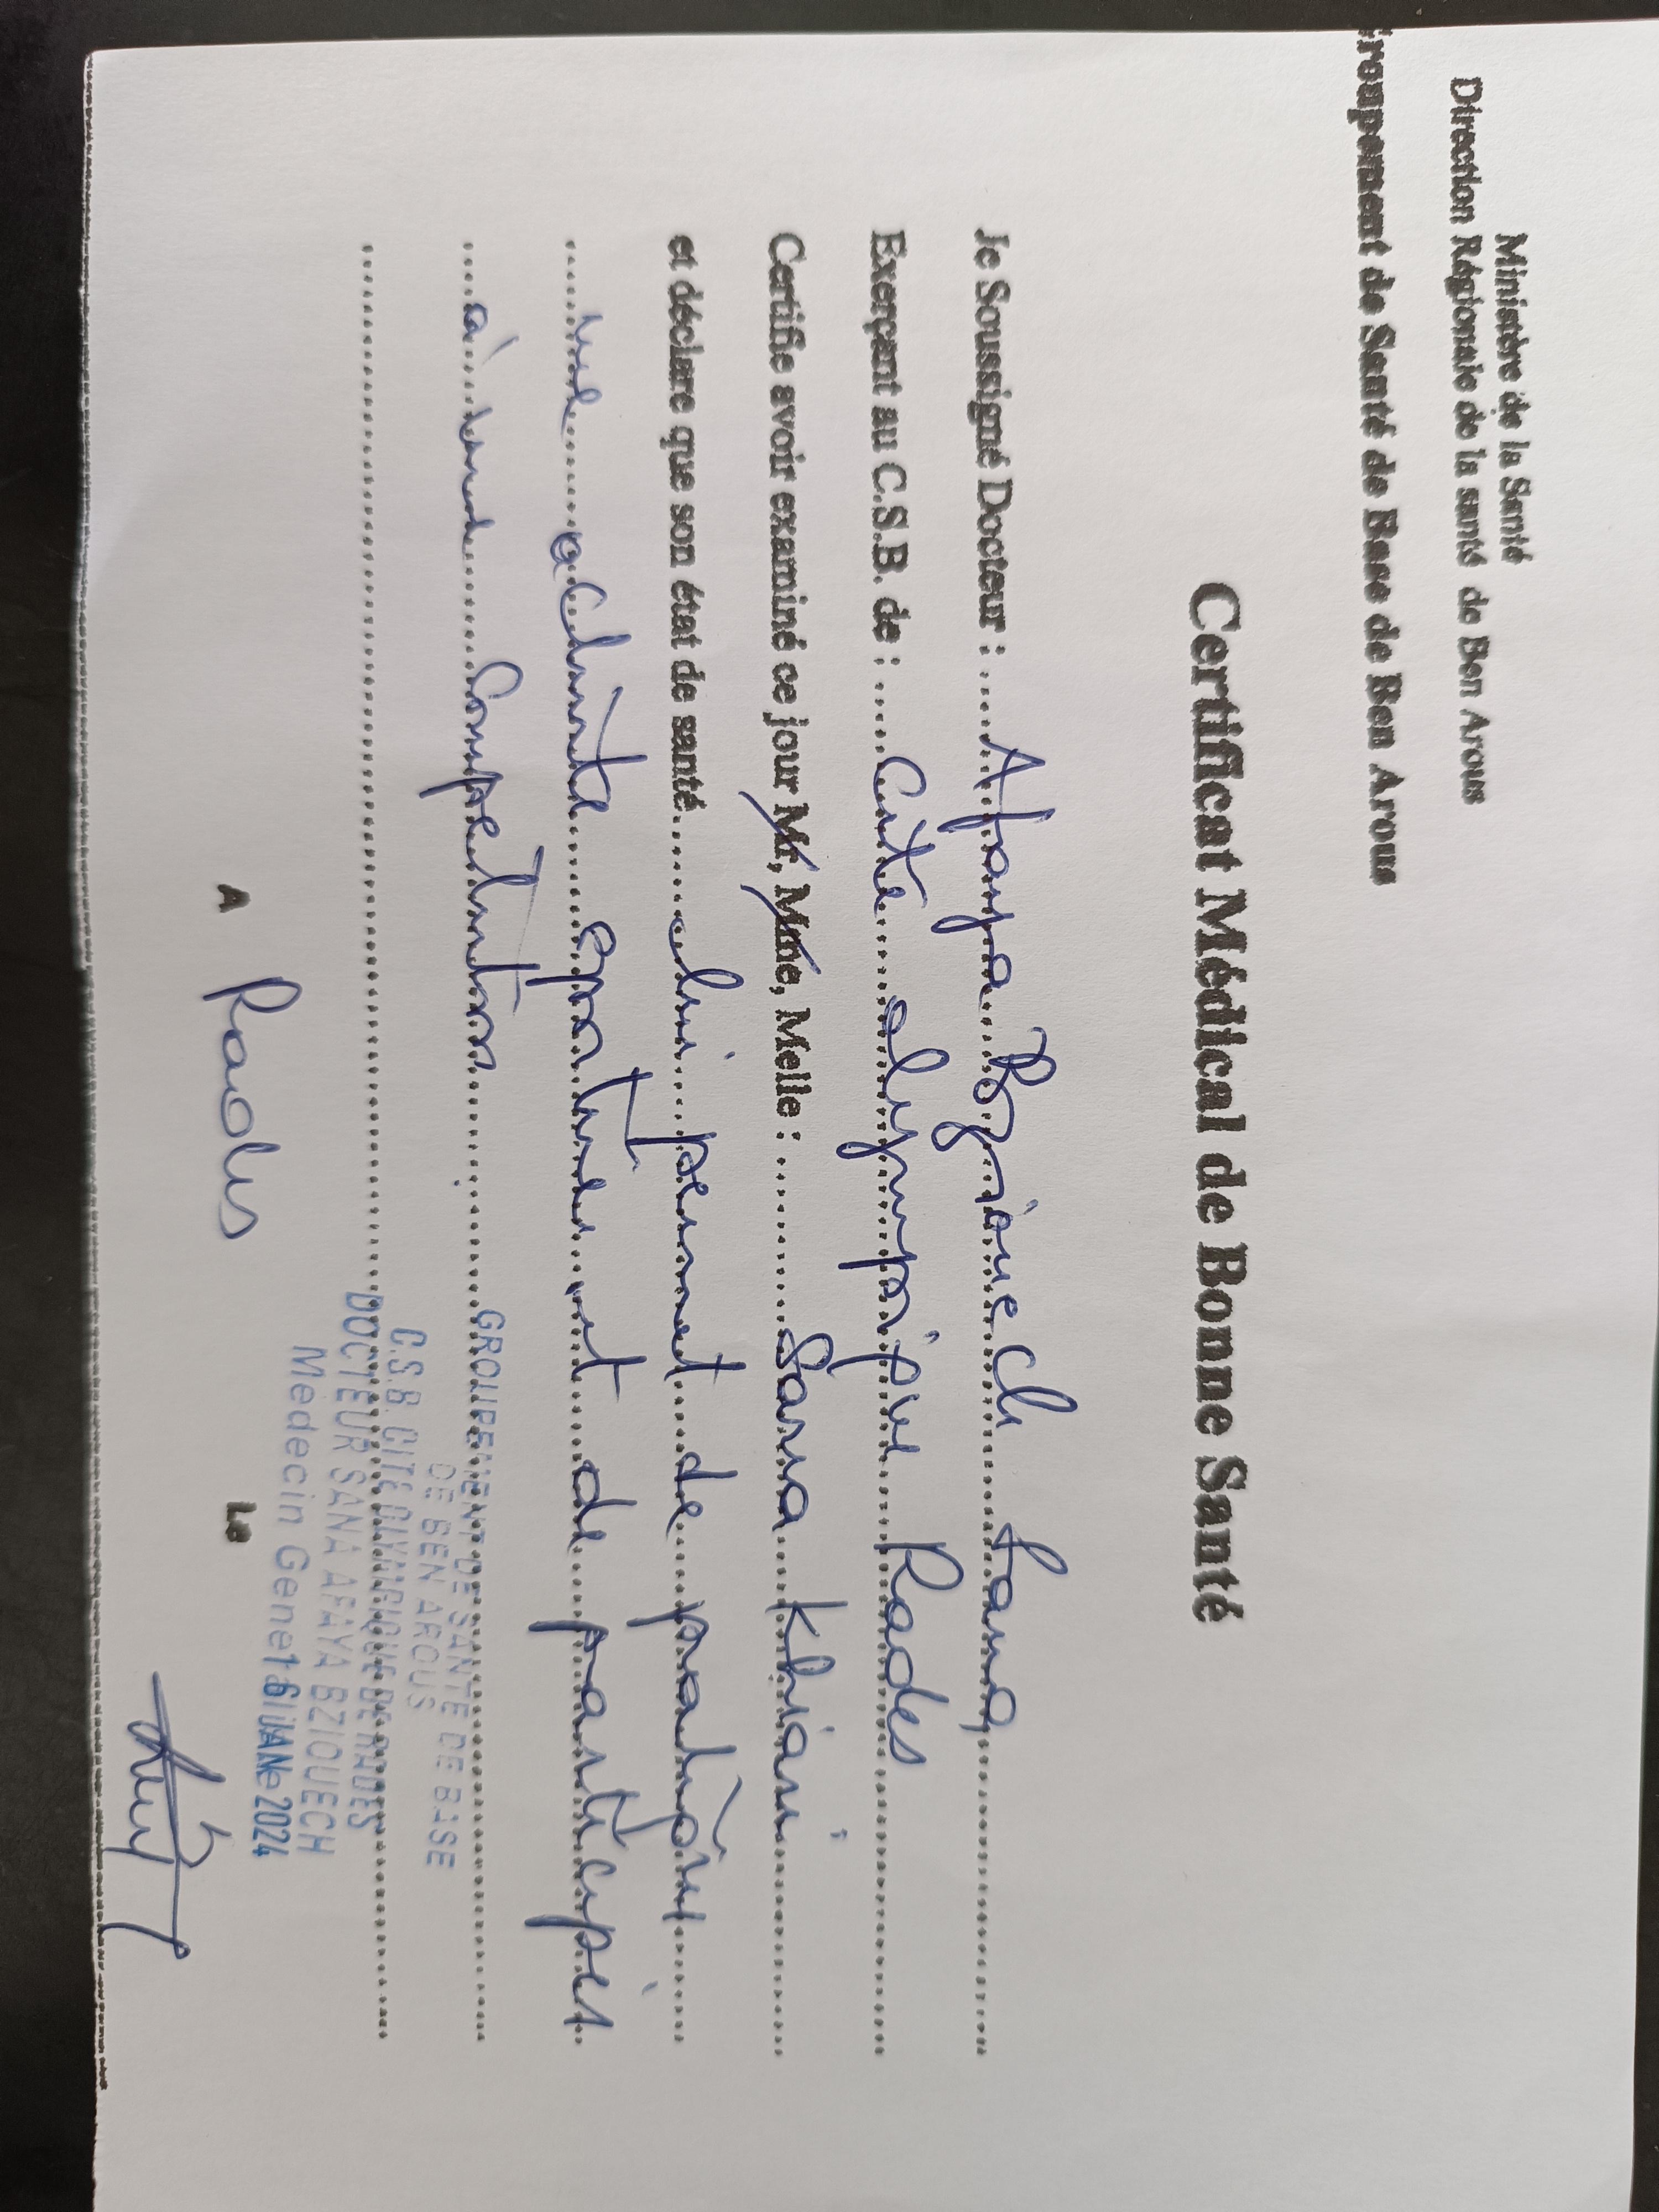 Ministère de la Santé
Direction Régionale de la santé de Ben Arous
Groupement de Santé de Base de Ben Arous
Certificat Médical de Bonne Santé
Je Soussigné Docteur : Afaya Bziouech Sana
Exerçant au C.S.B. de : Cité olympique Rades
Certifie avoir examiné ce jour Mr, Mme, Melle : Sarra Khiari
et déclare que son état de santé lui permet de pratiquer
une activité sportive et de participer
à une compétition
GROUPEMENT DE SANTE DE BASE
DE BEN AROUS
C.S.B. CITE OLYMPIQUE DE RADES
DOCTEUR SANA AFAYA BZIOUECH
Médecin Generaliste
A Rades Le 16 JAN 2024